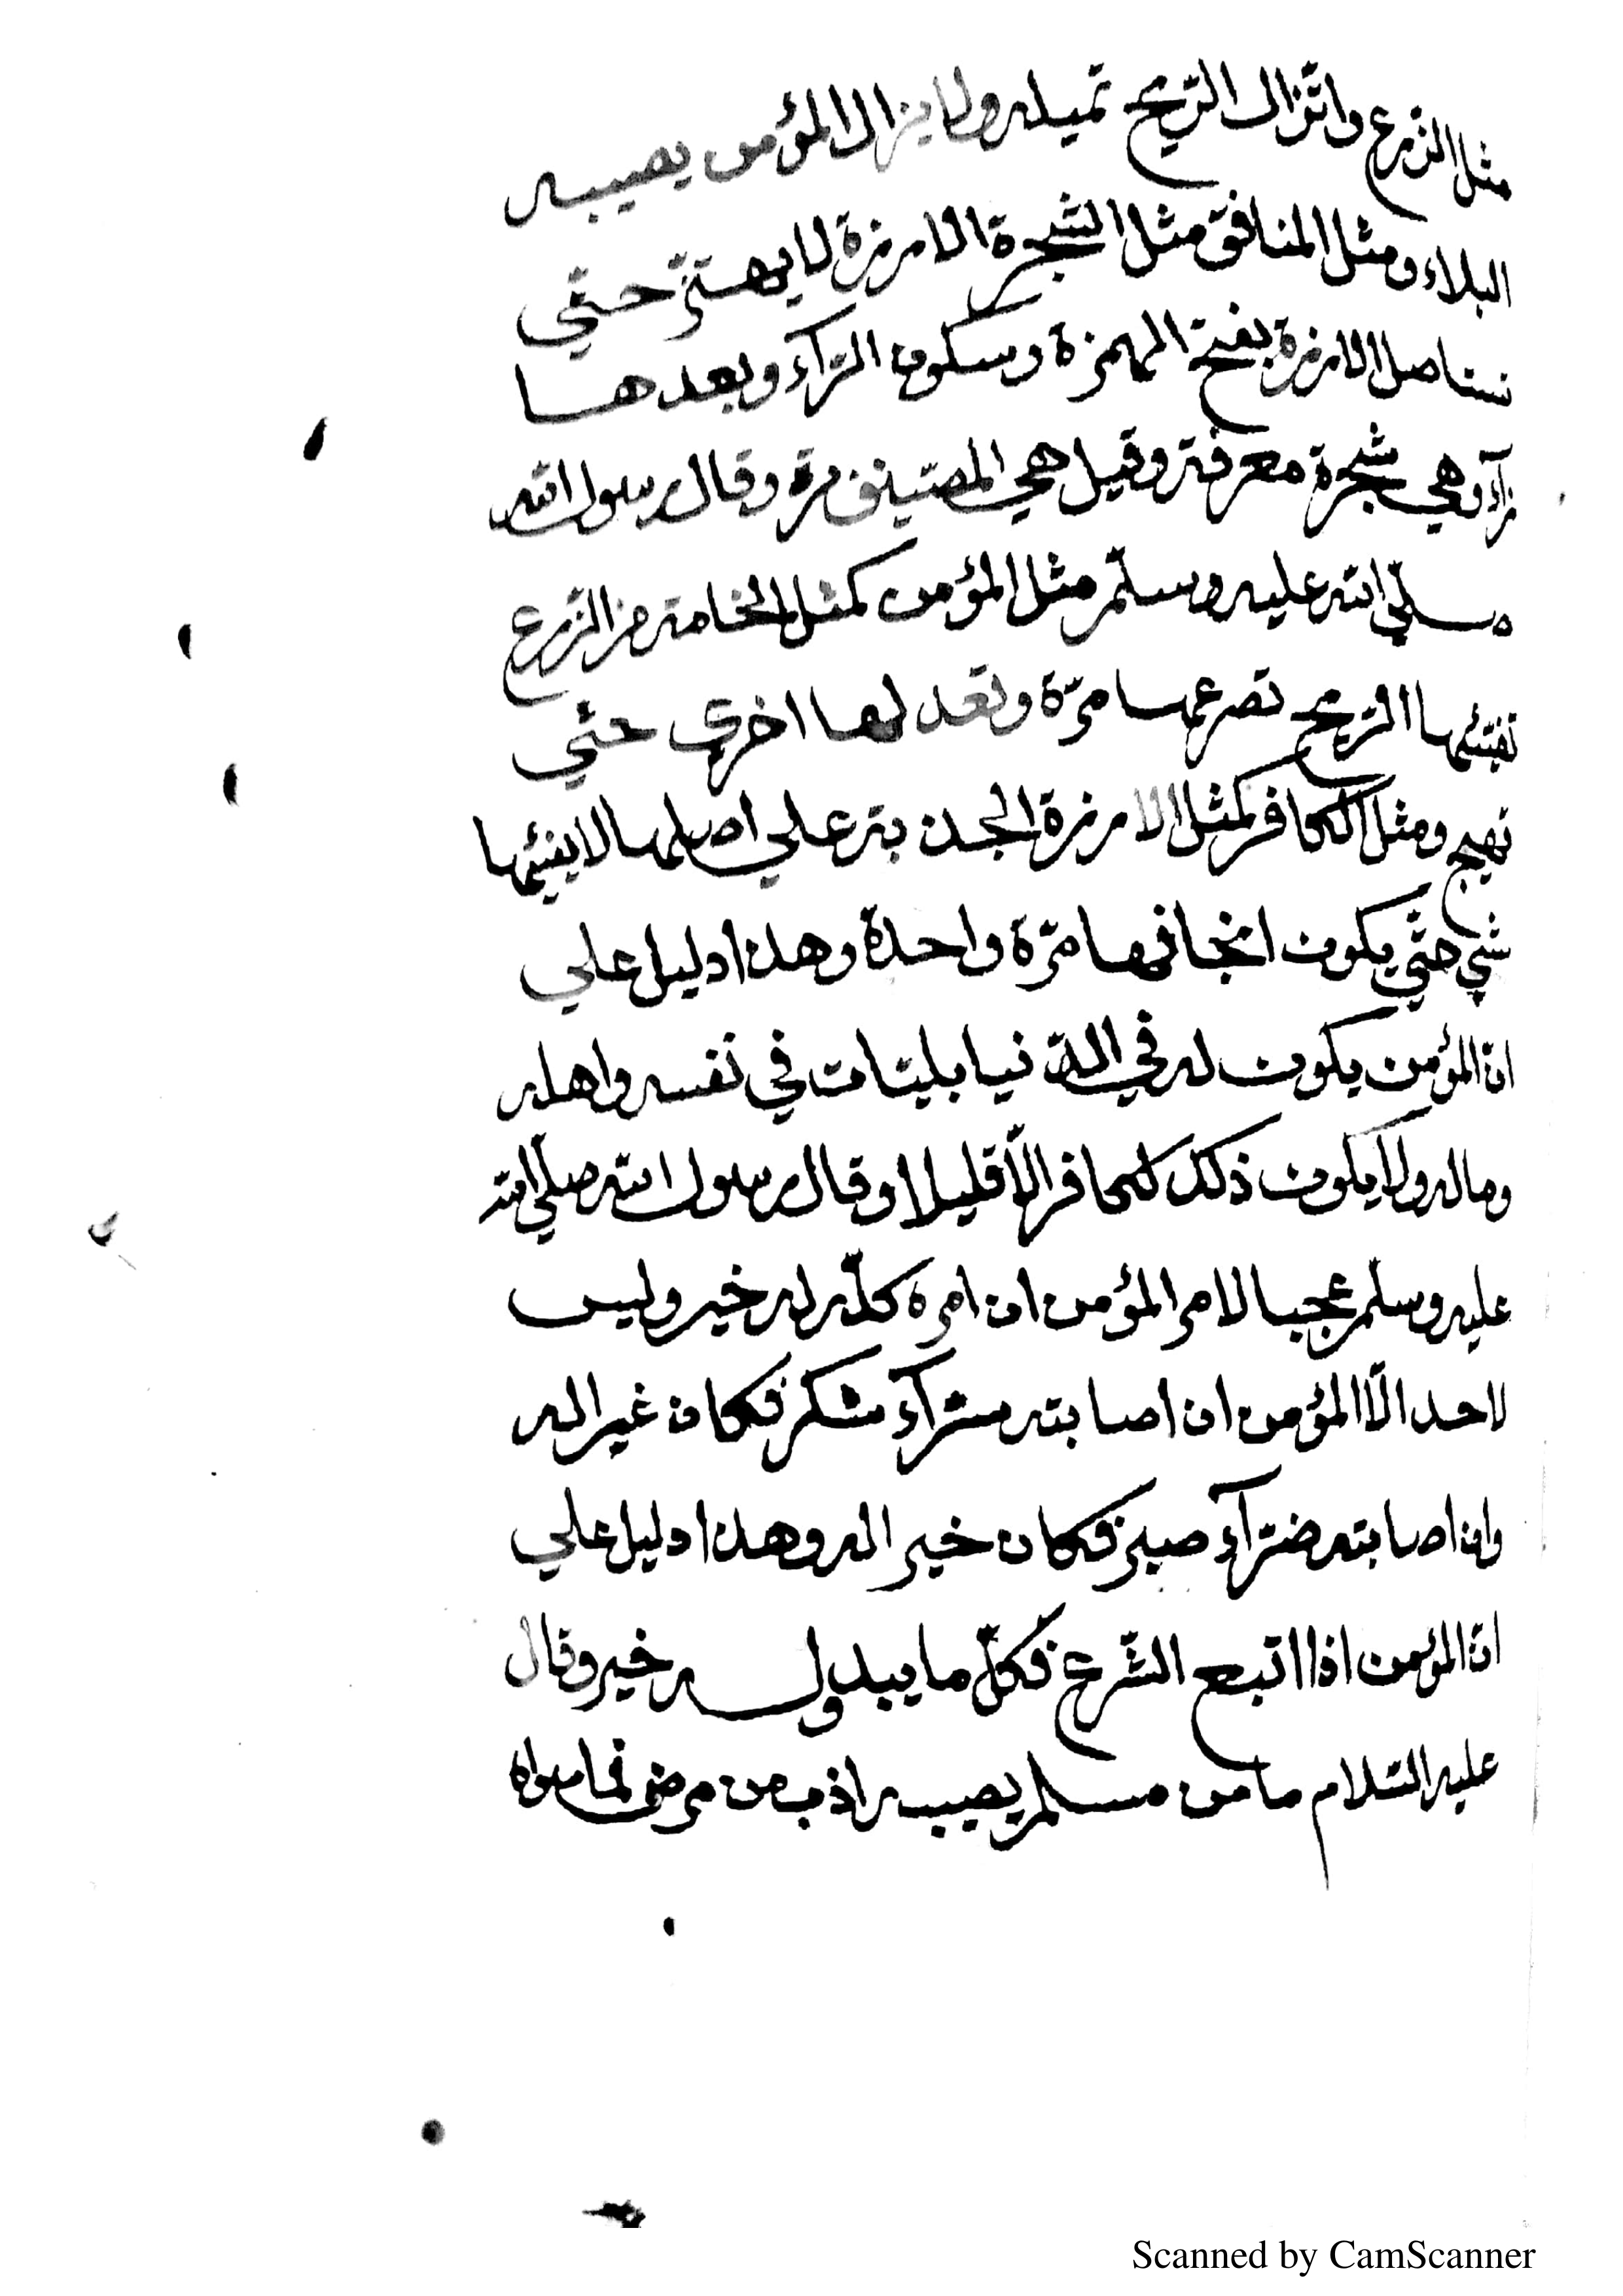 مثل الزرع ولا تزال الريح تميله ولا يزال المؤمن يصيبه
البلاء ومثل المنافق مثل الشجرة الارزة لا يهتزّ حتي
تستاصل الارزة بفتح الهمزة وسكون الرّآء وبعدها
زآء وهي شجرة معرفة وقيل هي الصّنوبرة وقال رسول الله
صلّي الله عليه وسلّم مثل المؤمن كمثل الخامة من الزّرع
تفيّئها الرّيح تصرعها مرّة وتعدلها اخري حتّي
تهيج ومثل الكافر كمثل الارزة المجذبة علي اصلها لا يفيئها
شي حتّي يكون انجافها مرّة واحدة وهذا دليل علي
انّ المؤمن يكون له في الدّنيا بليّات في نفسه واهله
وماله ولا يكون ذلك لكافر الّا قليلا وقال رسول الله صلّي الله
عليه وسلّم عجبا لامر المؤمن ان امره كلّه له خير وليس
لاحد الّا المؤمن ان اصابته سرّآء شكر فكان خيرا له
وان اصابته ضرّآء صبر فكان خيرا له وهذا دليل علي
انّ المؤمن اذا اتبع الشّرع فكلّ ما يبدو له خير وقال
عليه السّلام ما من مسلم يصيبه اذي من مرض فما سواه
Scanned by CamScanner